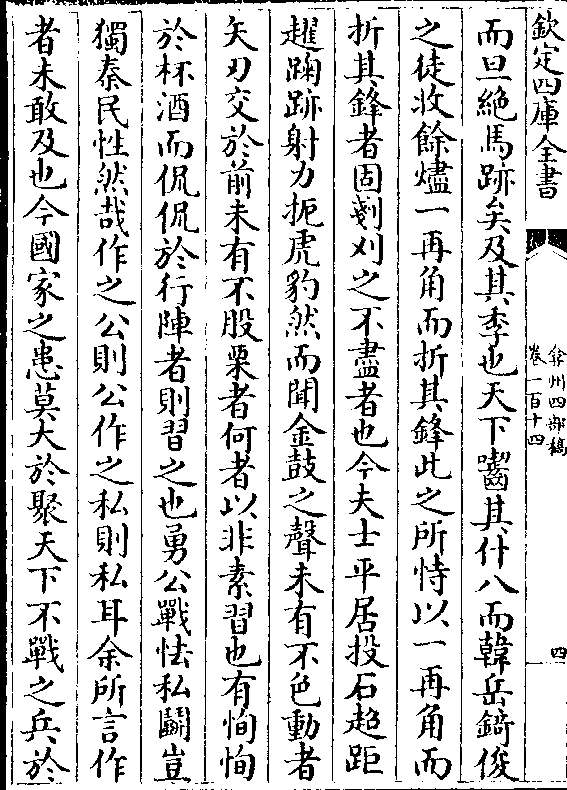 欽定四庫全書
弇州四部稿
卷一百十四
四
而旦絶馬跡矣及其季也天下齧其什八而韓岳錡俊
之徒收餘燼一再角而折其鋒此之所恃以一再角而
折其鋒者固剗刈之不盡者也今夫士平居投石超距
趯踘跡射力扼虎豹然而聞金鼓之聲未有不色動者
矢刃交於前未有不股栗者何者以非素習也有恂恂
於杯酒而侃侃於行陣者則習之也勇公戰怯私鬭豈
獨秦民性然哉作之公則公作之私則私耳余所言作
者未敢及也今國家之患莫大於聚天下不戰之兵於